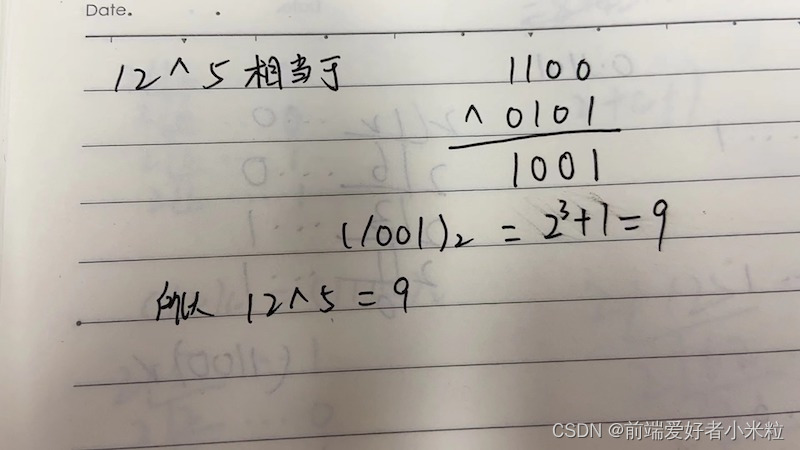 Date.
12 ^ 5 相当于
1100
^ 0101
1001
(1001)₂ = 2³+1=9
所以 12^5 = 9
CSDN @前端爱好者小米粒